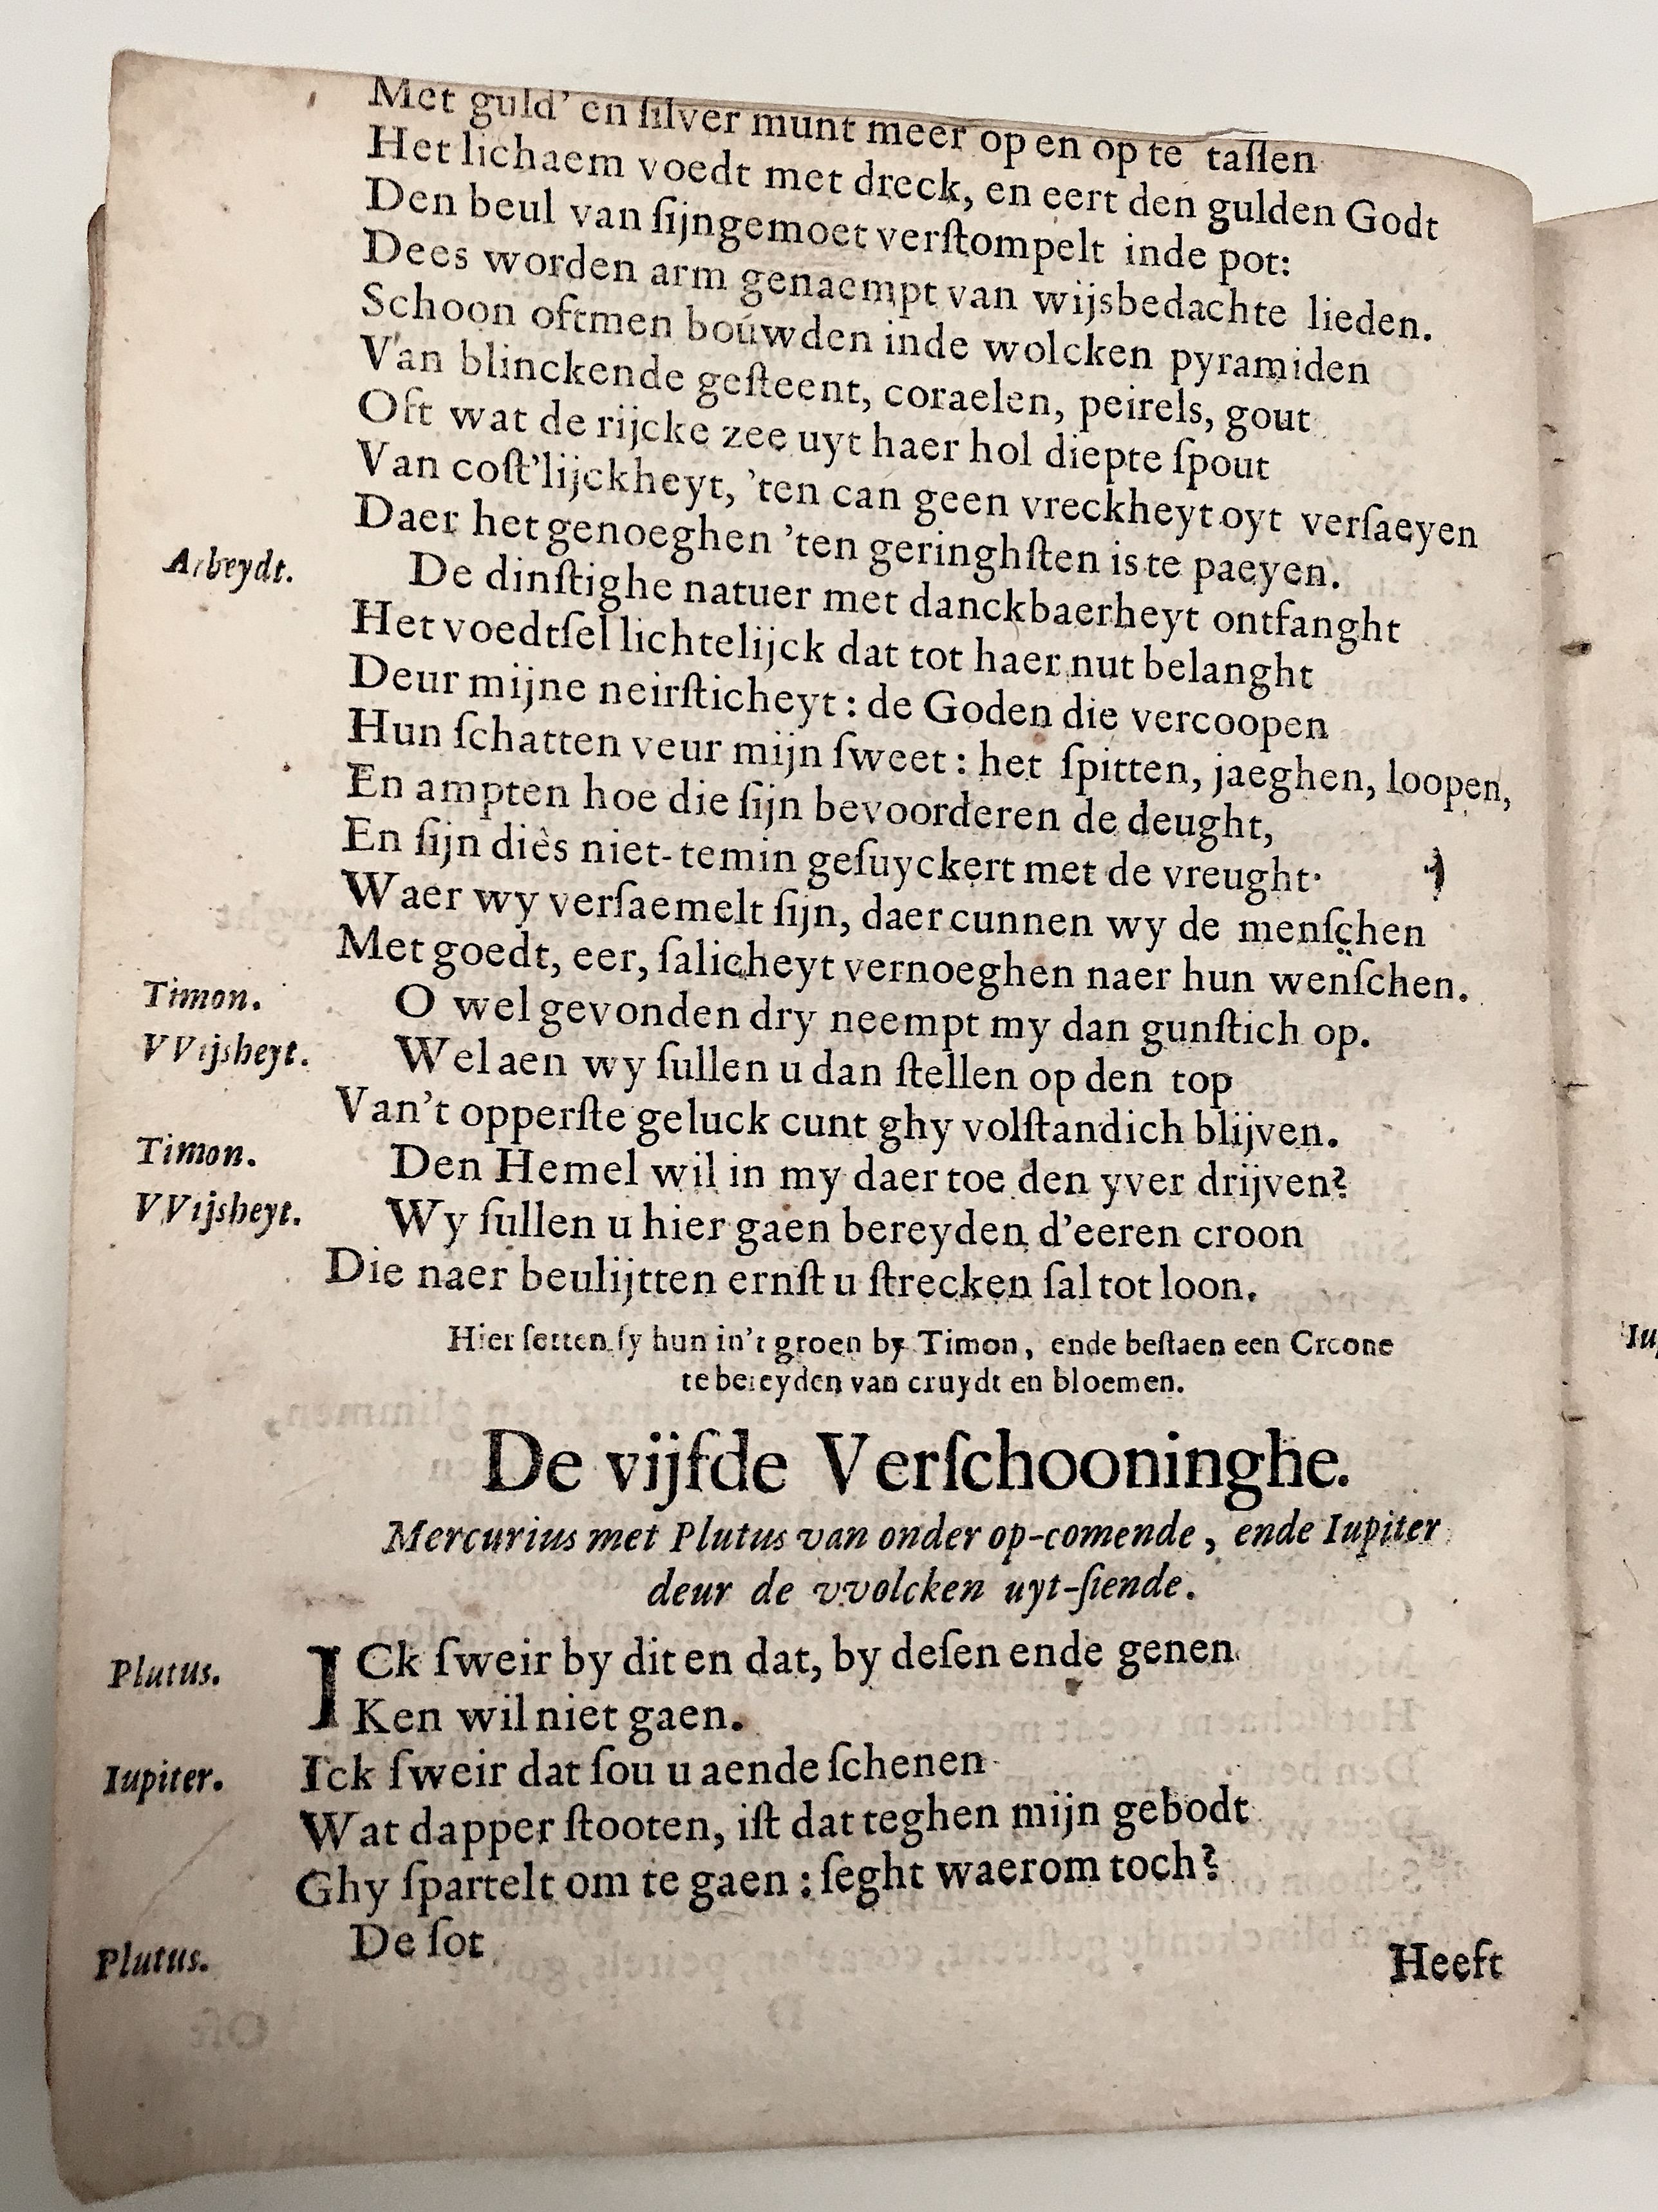 Met guld' en ſilver munt meer op en op te taſſen
Het lichaem voedt met dreck, en eert den gulden Godt
Den beul van ſijngemoet verſtompelt inde pot:
Dees worden arm genaempt van wijsbedachte lieden.
Schoon oftmen bouwden inde wolcken pyramiden
Van blinckende geſteent, coraelen, peirels, gout
Oft wat de rijcke zee uyt haer hol diepte ſpout
Van coſt'lijckheyt, 'ten can geen vreckheyt oyt verſaeyen
Daer het genoeghen 'ten geringhſten is te paeyen.
Arbeydt. De dinſtighe natuer met danckbaerheyt ontfanght
Het voedtſel lichtelijck dat tot haer nut belanght
Deur mijne neirſticheyt : de Goden die vercoopen
Hun ſchatten veur mijn ſweet : het ſpitten, jaeghen, loopen,
En ampten hoe die ſijn bevoorderen de deught,
En ſijn diès niet-temin geſuyckert met de vreught.
Waer wy verſaemelt ſijn, daer cunnen wy de menſchen
Met goedt, eer, ſalicheyt vernoeghen naer hun wenſchen.
Timon. O wel gevonden dry neempt my dan gunſtich op.
VVijsheyt. Wel aen wy ſullen u dan ſtellen op den top
Van't opperſte geluck cunt ghy volſtandich blijven.
Timon. Den Hemel wil in my daer toe den yver drijven?
VVijsheyt. Wy ſullen u hier gaen bereyden d'eeren croon
Die naer beulijtten ernſt u ſtrecken ſal tot loon.
Hier ſetten ſy hun in't groen by Timon, ende beſtaen een Croone
te bereyden van cruydt en bloemen.
De vijfde Verſchooninghe.
Mercurius met Plutus van onder op-comende, ende Iupiter
deur de vvolcken uyt-ſiende.
Plutus. ICk ſweir by dit en dat, by deſen ende genen
Ken wil niet gaen.
Iupiter. Ick ſweir dat ſou u aende ſchenen
Wat dapper ſtooten, iſt dat teghen mijn gebodt
Ghy ſpartelt om te gaen : ſeght waerom toch?
Plutus. De ſot
Heeft
Iu